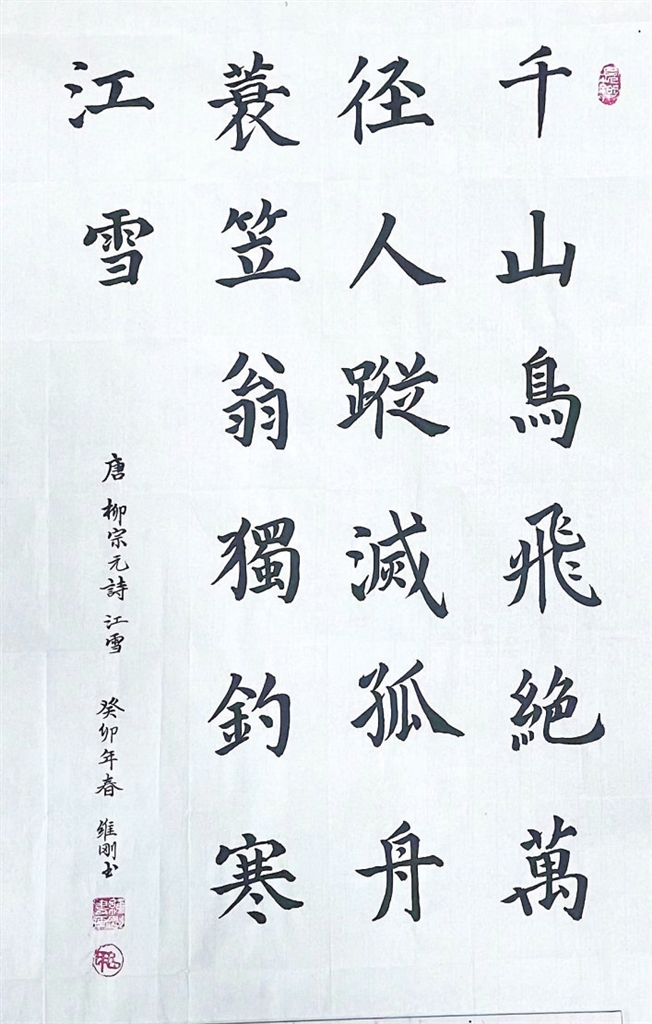 千山鳥飛絕萬
徑人蹤滅孤舟
蓑笠翁獨釣寒
江雪
唐 柳宗元詩 江雪 癸卯年春 維刚书